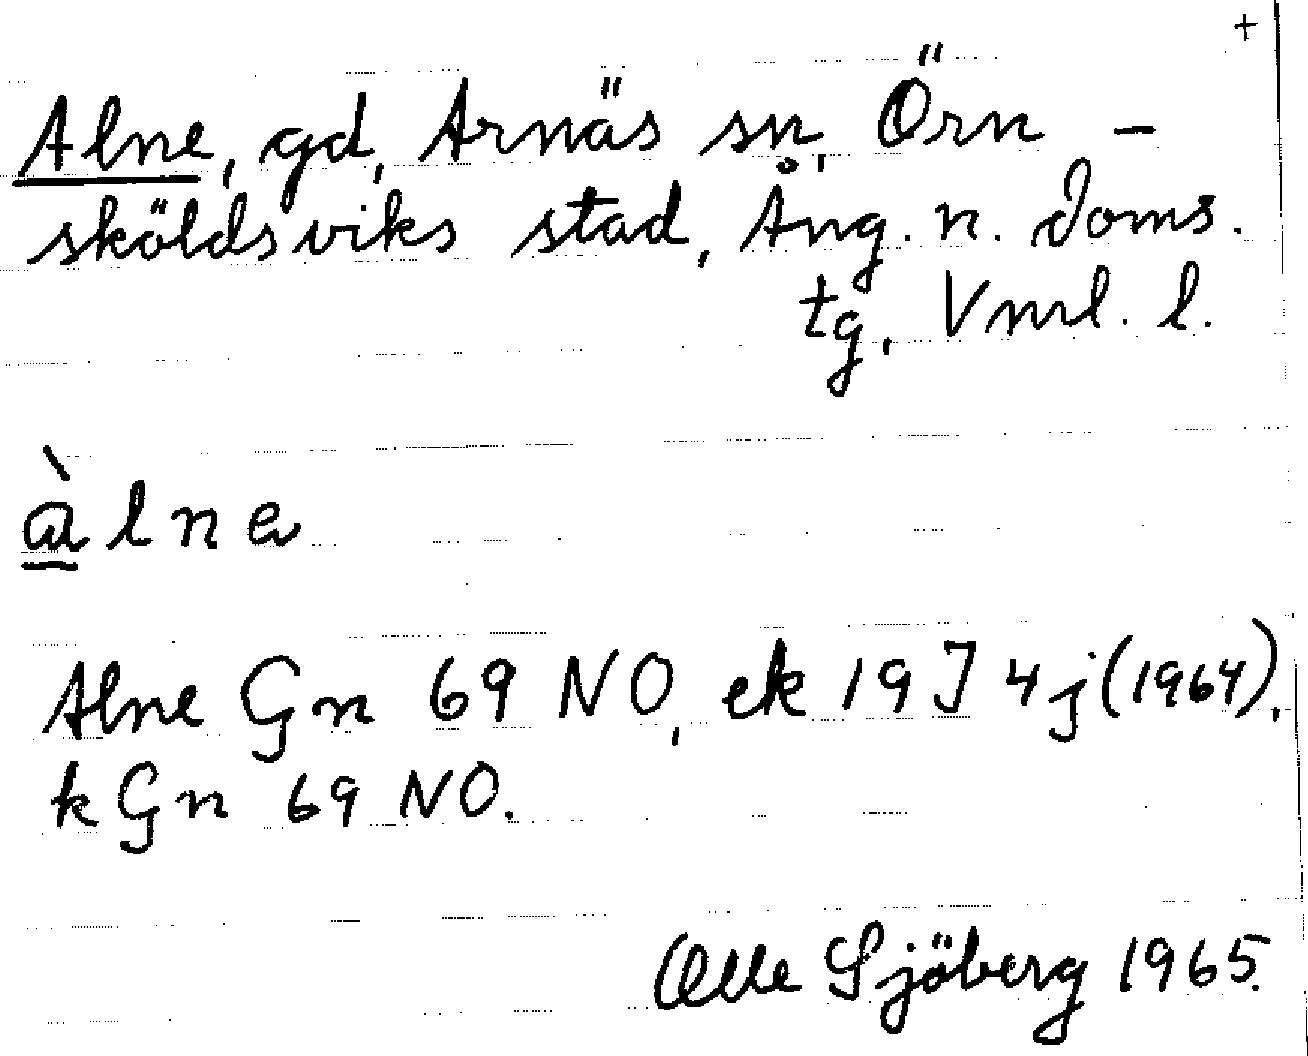 +
Alne, gd, Arnäs sn, Örn -
sköldsviks stad, Ång. n. doms.
tg, Vnrl. l.
àlne
Alne Gn 69 NO, ek 19 J 4 j (1964),
k Gn 69 NO.
Olle Sjöberg 1965.